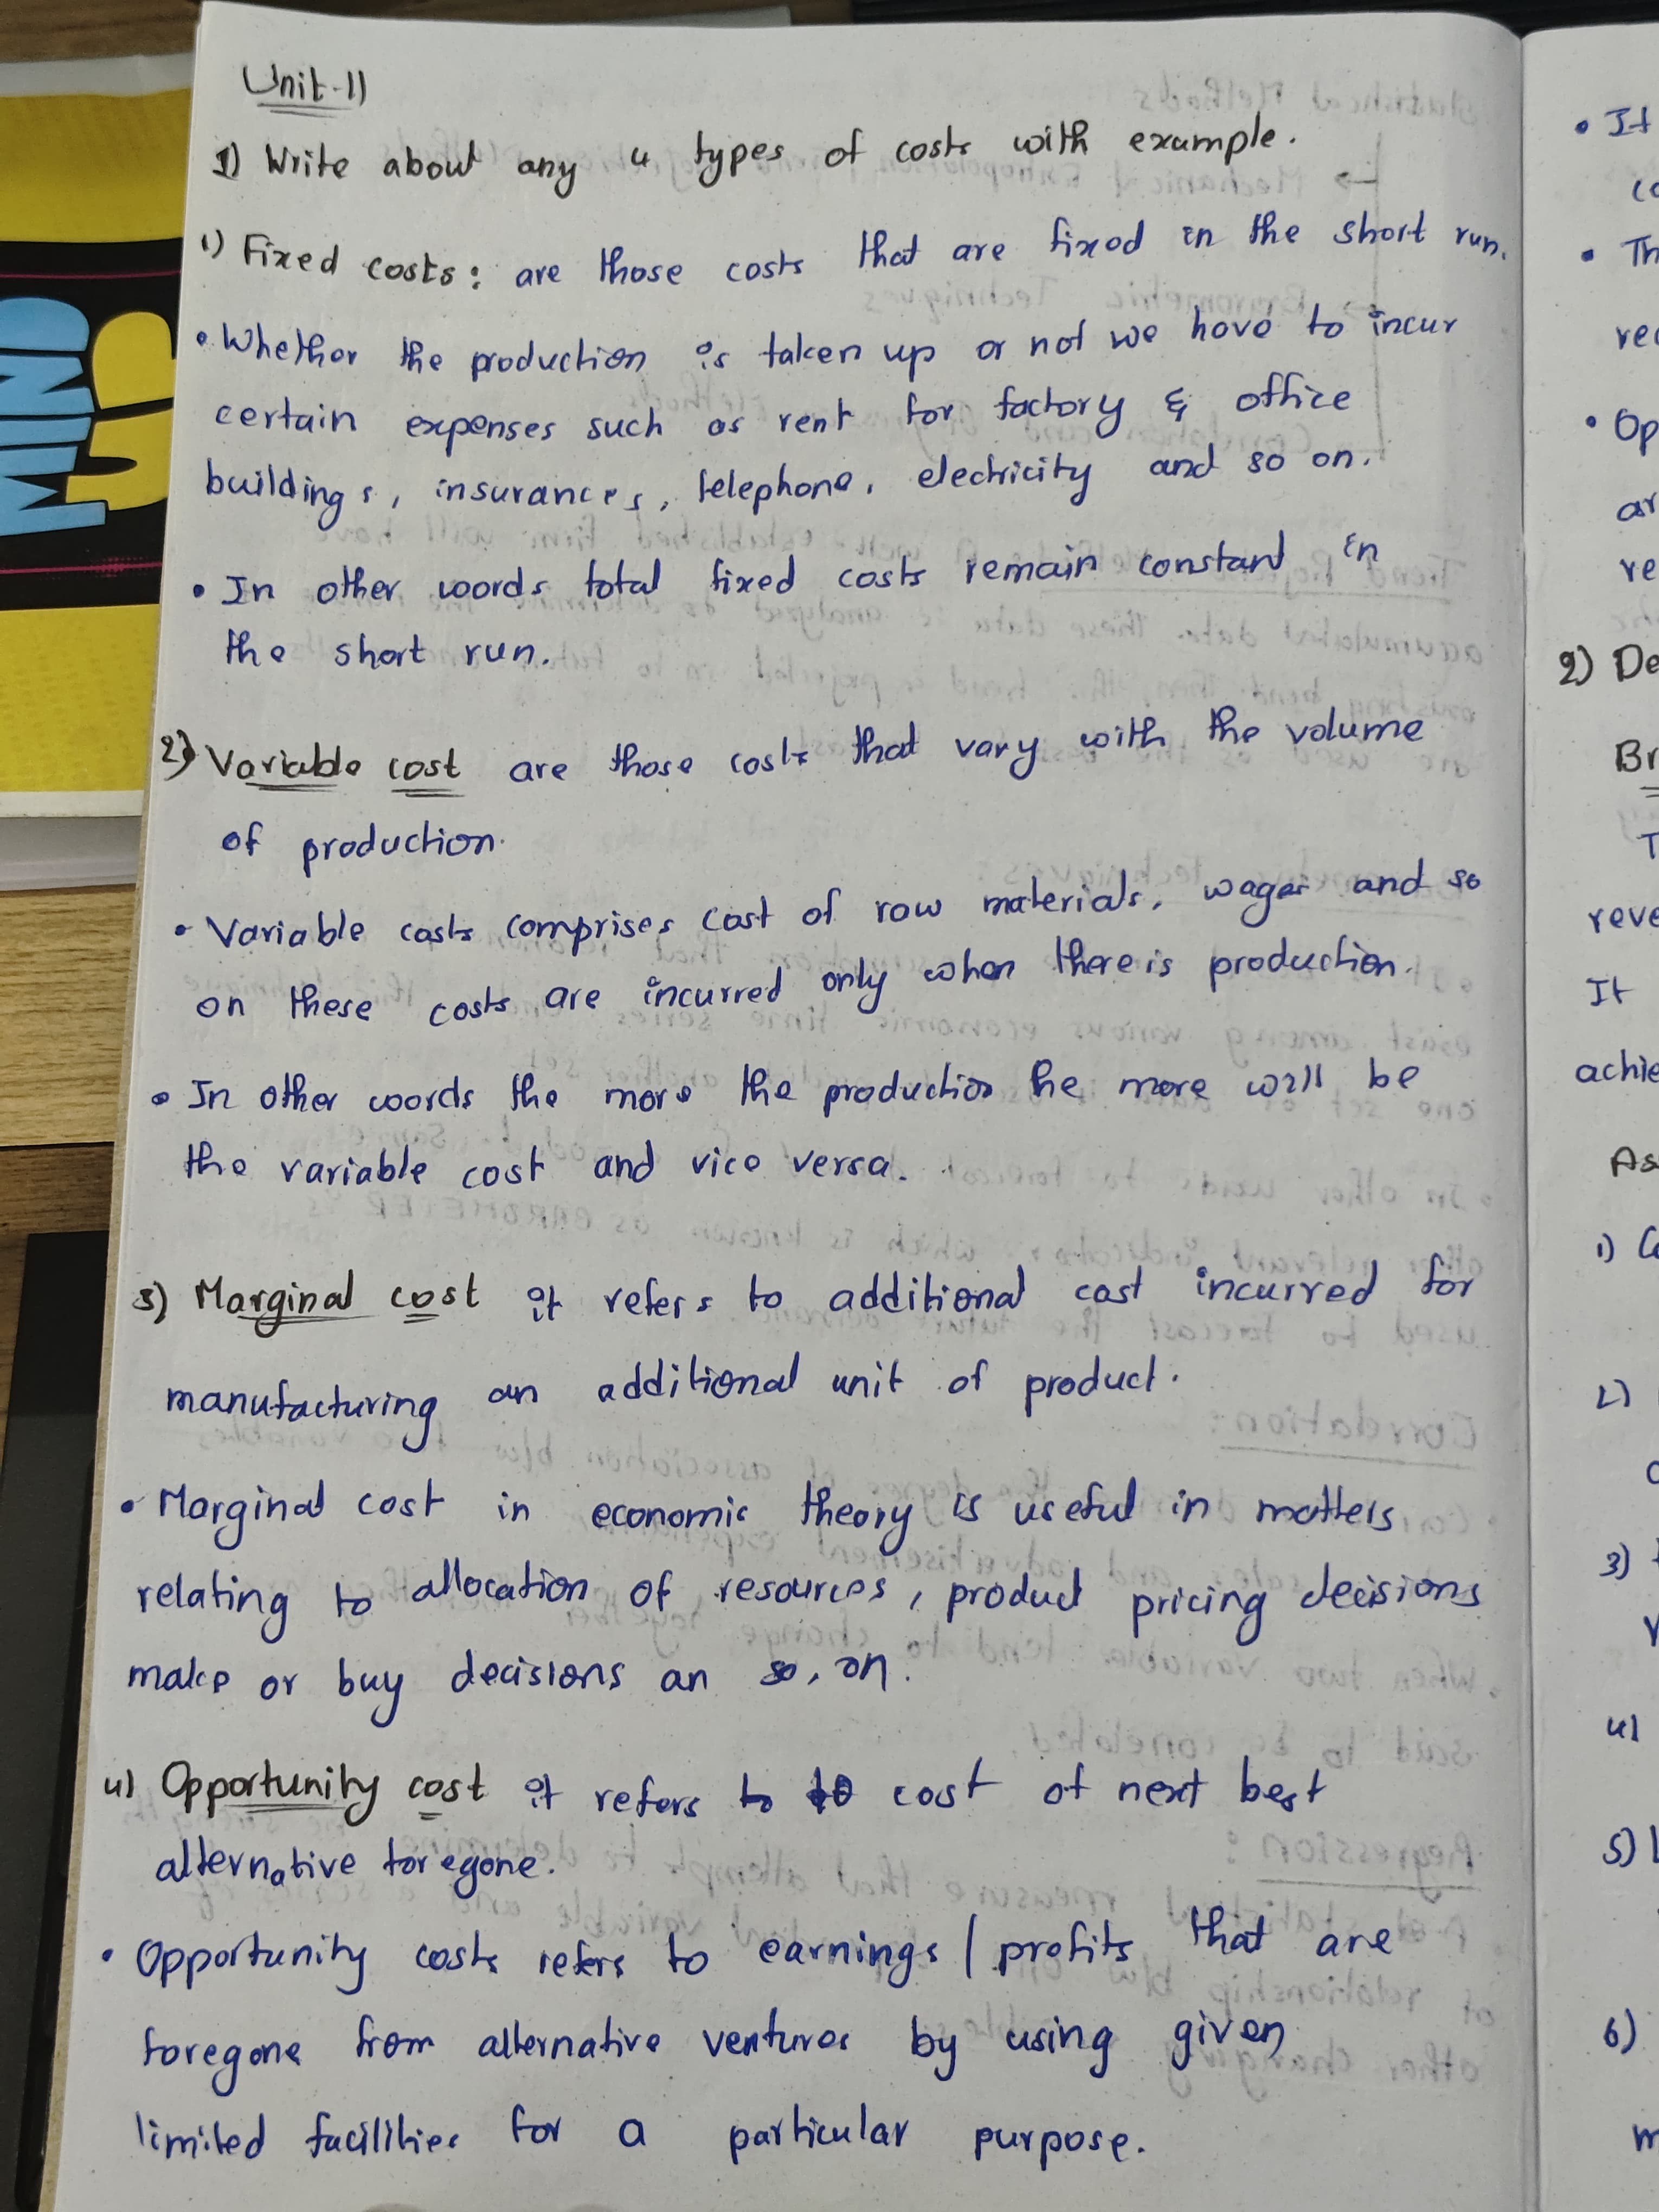 Unit-II
1) Write about any 4 types of costs with example.
1) Fixed costs: are those costs that are fixed in the short run.
• Whether the production is taken up or not we have to incur
certain expenses such as rent for factory & office
buildings, insurances, telephone, electricity and so on.
• In other words total fixed costs remain constant in
the short run.
2) Variable cost are those costs that vary with the volume
of production.
• Variable costs comprises cost of raw materials, wages and so
on these costs are incurred only when there is production.
• In other words the more the production he more will be
the variable cost and vice versa.
3) Marginal cost it refers to additional cost incurred for
manufacturing an additional unit of product.
• Marginal cost in economic theory is useful in matters
relating to allocation of resources, product pricing decisions
make or buy decisions an so, on.
4) Opportunity cost it refers to cost of next best
alternative foregone.
• Opportunity costs refers to earnings / profits that are
foregone from alternative ventures by using given
limited facilities for a particular purpose.
MIND
• It
• Th
• Op
2) De
Br
It
As
1)
2)
3)
4)
5)
6)